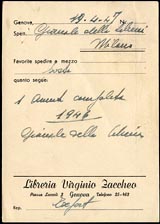 Genova, 19-4-47
Spett. Giornale della Libreria
Milano
Favorite spedire a mezzo
posta
quanto segue:
1 annata completa
1946
Giornale della Libreria
Libreria Virginio Zaccheo
Piazza Luccoli 2 Genova Telefono 25-162
Rep.